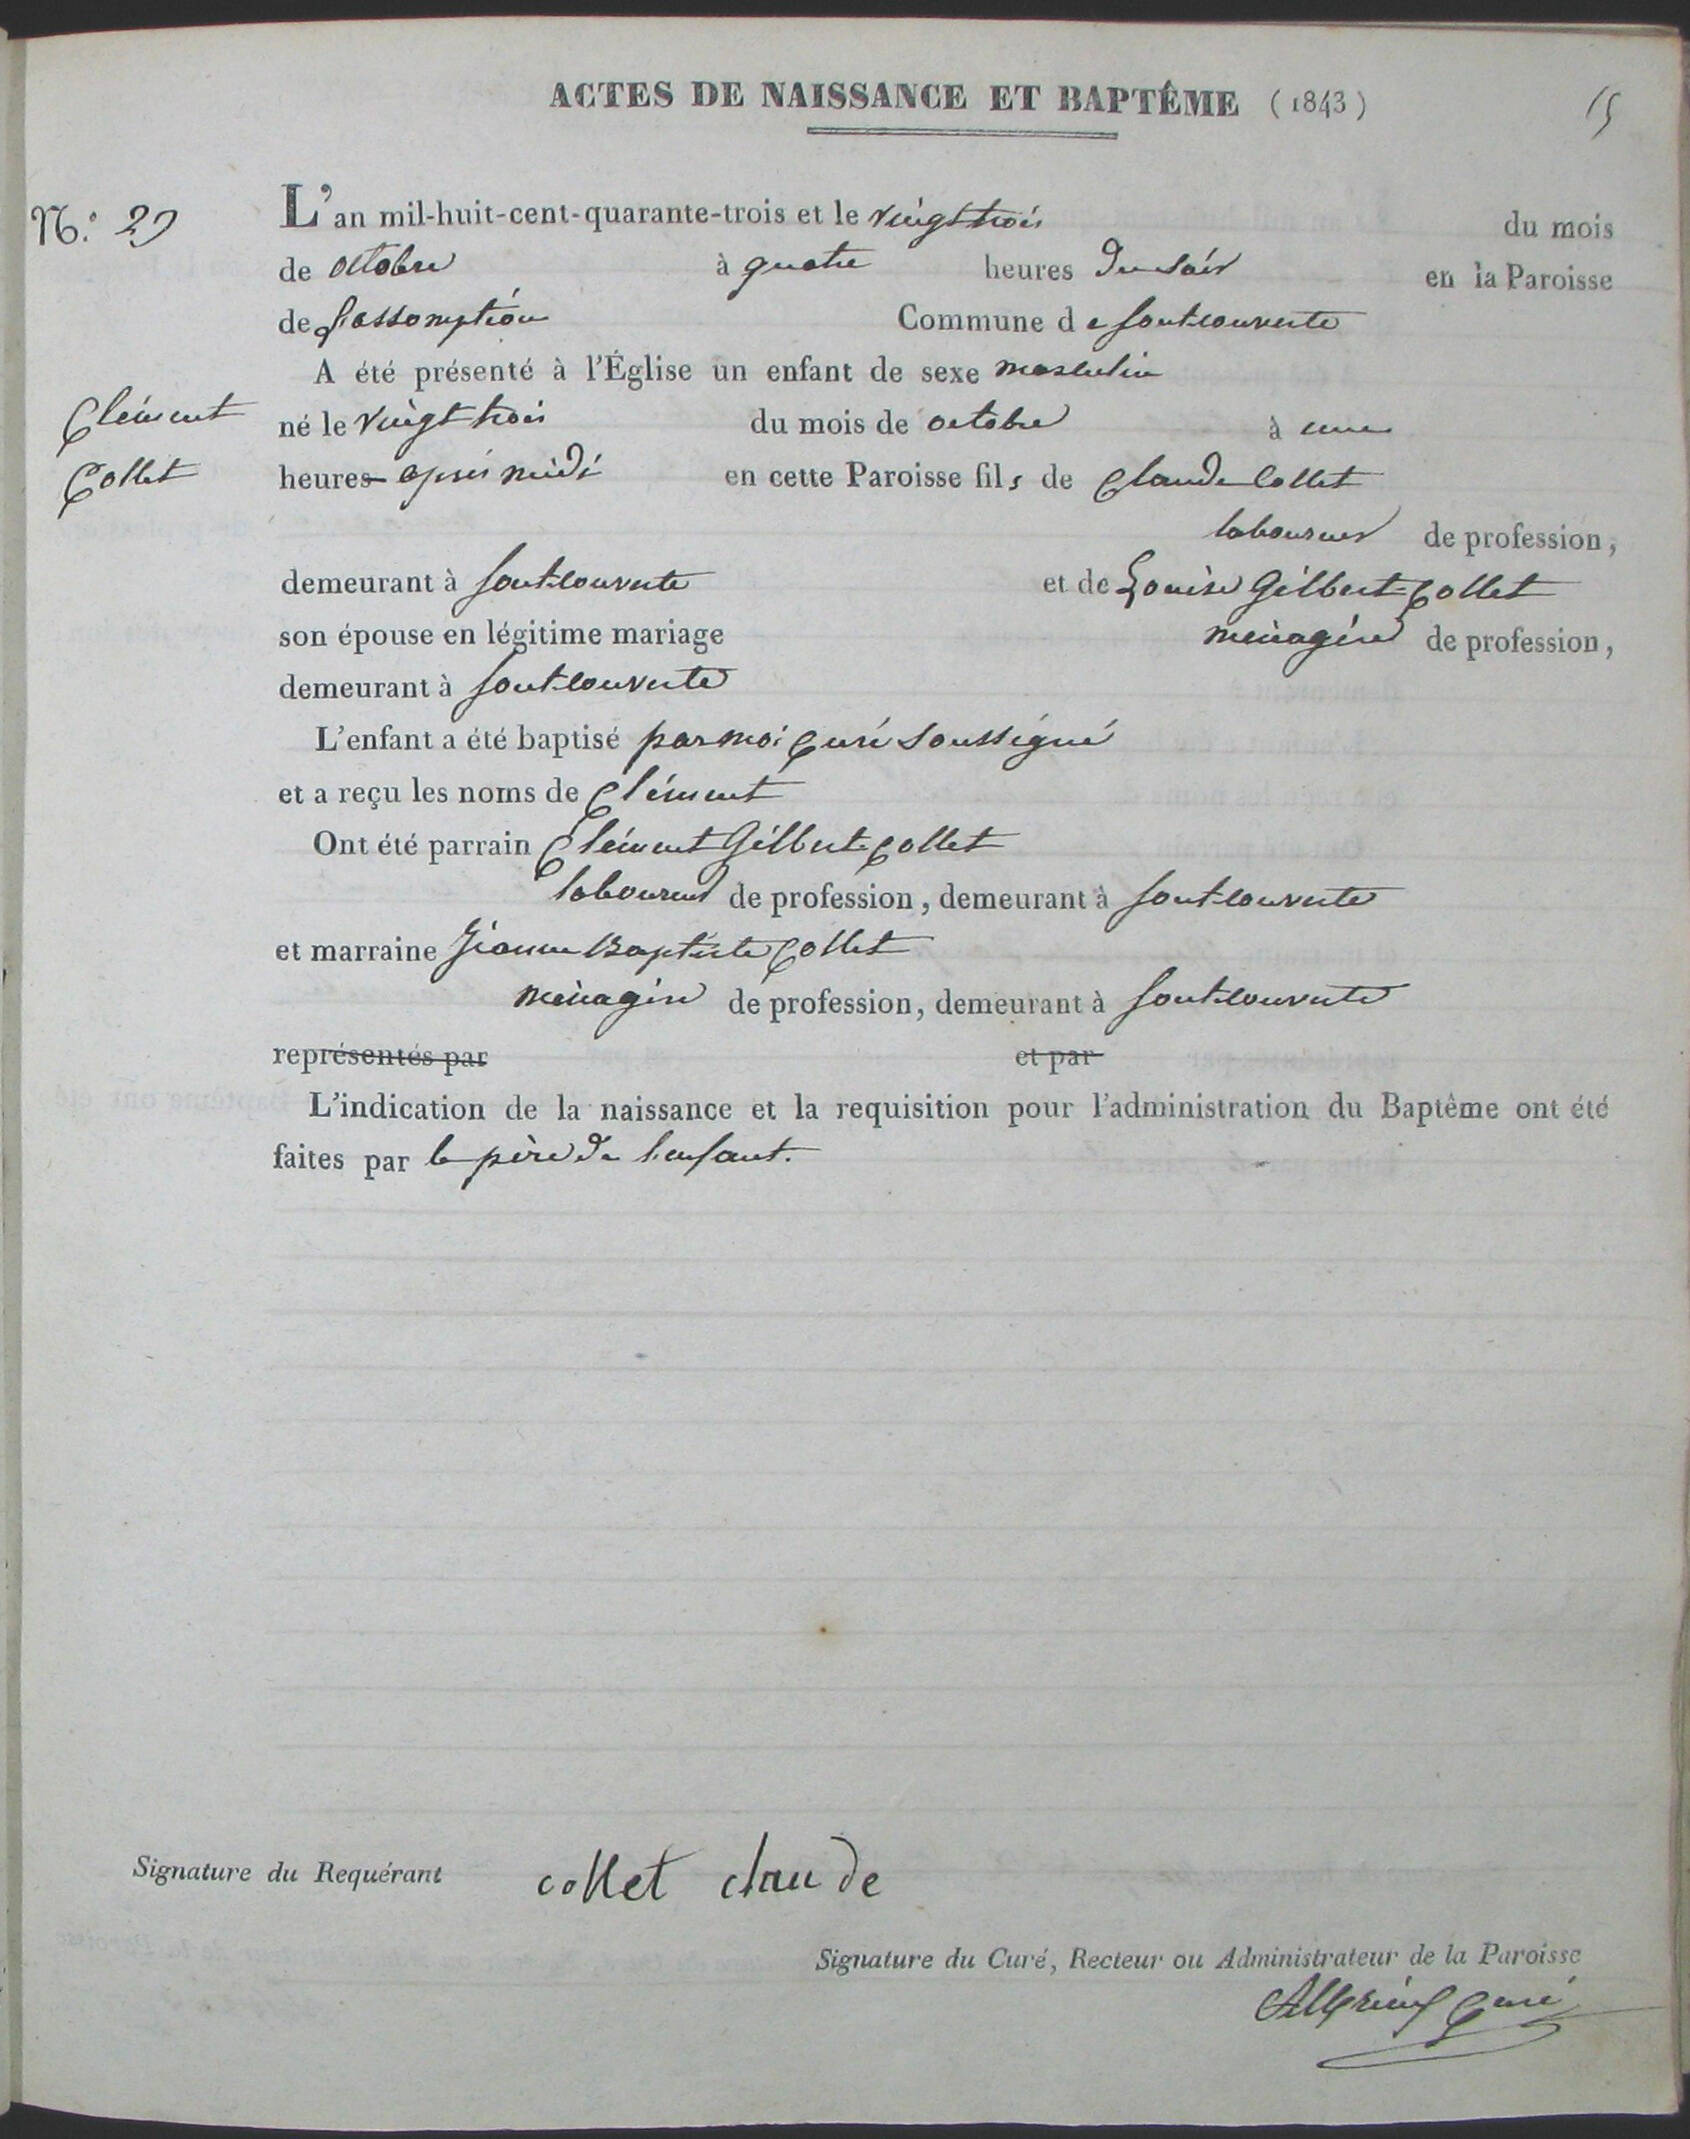 ACTES DE NAISSANCE ET BAPTÊME (1843)
15
N.º 29
L'an mil-huit-cent-quarante-trois et le vingt trois du mois
de octobre à quatre heures du soir en la Paroisse
de l'assomption Commune de fontcouverte
A été présenté à l'Église un enfant de sexe masculin
Clément né le vingt trois du mois de octobre à une
Collet heures après midi en cette Paroisse fils de Claude Collet
laboureur de profession,
demeurant à fontcouverte et de Louise Gilbert-Collet
son épouse en légitime mariage ménagère de profession,
demeurant à fontcouverte
L'enfant a été baptisé par moi Curé soussigné
et a reçu les noms de Clément
Ont été parrain Clément Gilbert-Collet
laboureur de profession, demeurant à fontcouverte
et marraine Jeanne Baptiste Collet
ménagère de profession, demeurant à fontcouverte
représentés par et par
L'indication de la naissance et la requisition pour l'administration du Baptême ont été
faites par le père de l'enfant.
Signature du Requérant collet claude
Signature du Curé, Recteur ou Administrateur de la Paroisse
Curé